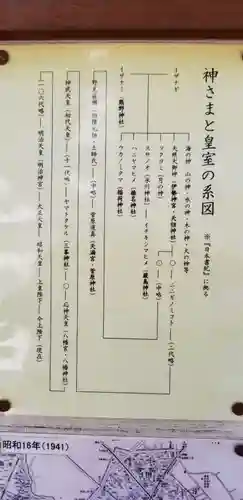 神さまと皇室の系図
※『日本書紀』に拠る
イザナギ
海の神・山の神・水の神・木の神・火の神等
天照大御神(伊勢神宮・天祖神社)
ニニギノミコト
(三代略)
ツクヨミ(月の神)
(中略)
スサノオ(氷川神社)
イチキシマヒメ(厳島神社)
ハニヤマヒメ(榛名神社)
ウカノミタマ(稲荷神社)
イザナミ(熊野神社)
(中略)
菅原道真(天満宮・菅原神社)
神武天皇(初代天皇)
(十一代略)
ヤマトタケル(三峯神社)
応神天皇(八幡宮・八幡神社)
(一〇六代略)
明治天皇(明治神宮)
大正天皇
昭和天皇
上皇陛下
今上陛下(現在)
昭和16年(1941)